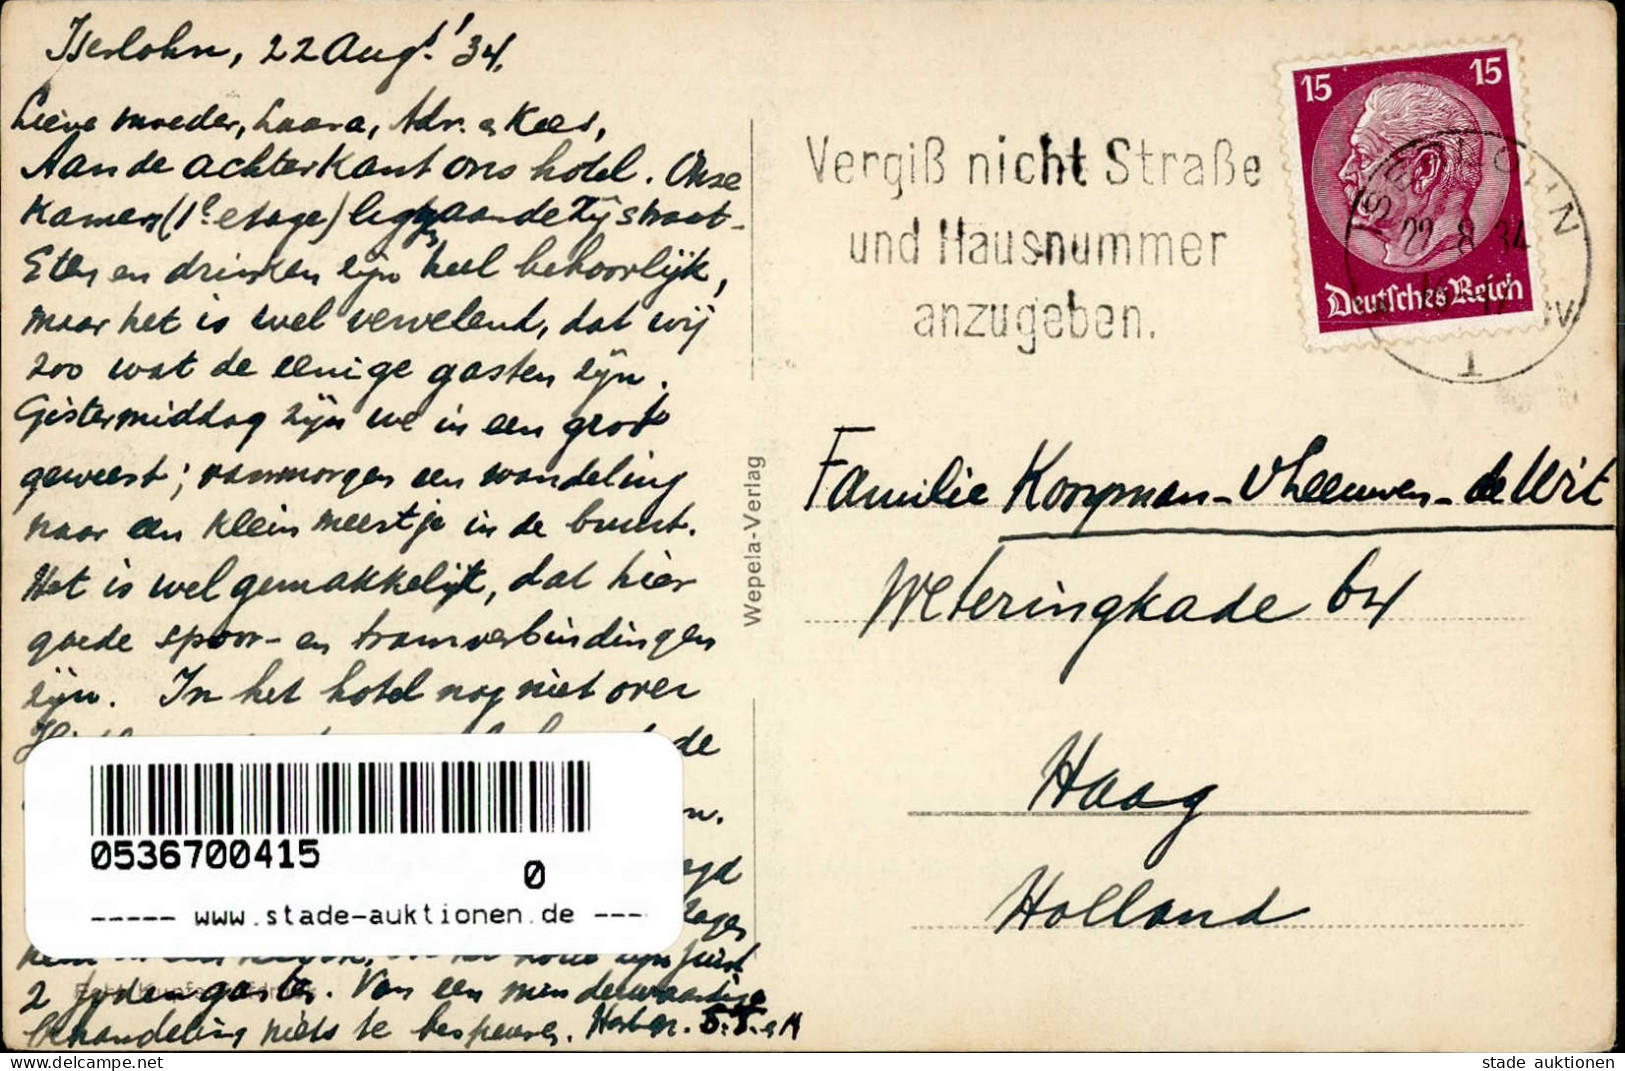 Iserlohn, 22 Aug! '34.
Lieve moeder, Laura, Adr. & Kees,
Aan de achterkant ons hotel. Onze
Kamers (1e etage) liggen aan de zijstraat.
Eten en drinken zijn heel behoorlijk,
maar het is wel vervelend, dat wij
zoo wat de eenige gasten zijn.
Gistermiddag zijn we in een grot
geweest; vanmorgen een wandeling
naar een klein meertje in de buurt.
Het is wel gemakkelijk, dat hier
goede spoor- en tramverbindingen
zijn. In het hotel nog niet over
de
zijn juist
2 Joden gasten. Van een minderwaardige
behandeling niets te bespeuren.
Vergiß nicht Straße
und Hausnummer
anzugeben.
15 15
Deutsches Reich
ISERLOHN
22 8 34
1
Wepela-Verlag
Familie Kooyman - v Leeuwen - de Wit
Weteringkade 64
Haag
Holland
0536700415
0
----- www.stade-auktionen.de ---
stade auktionen
stade auktionen